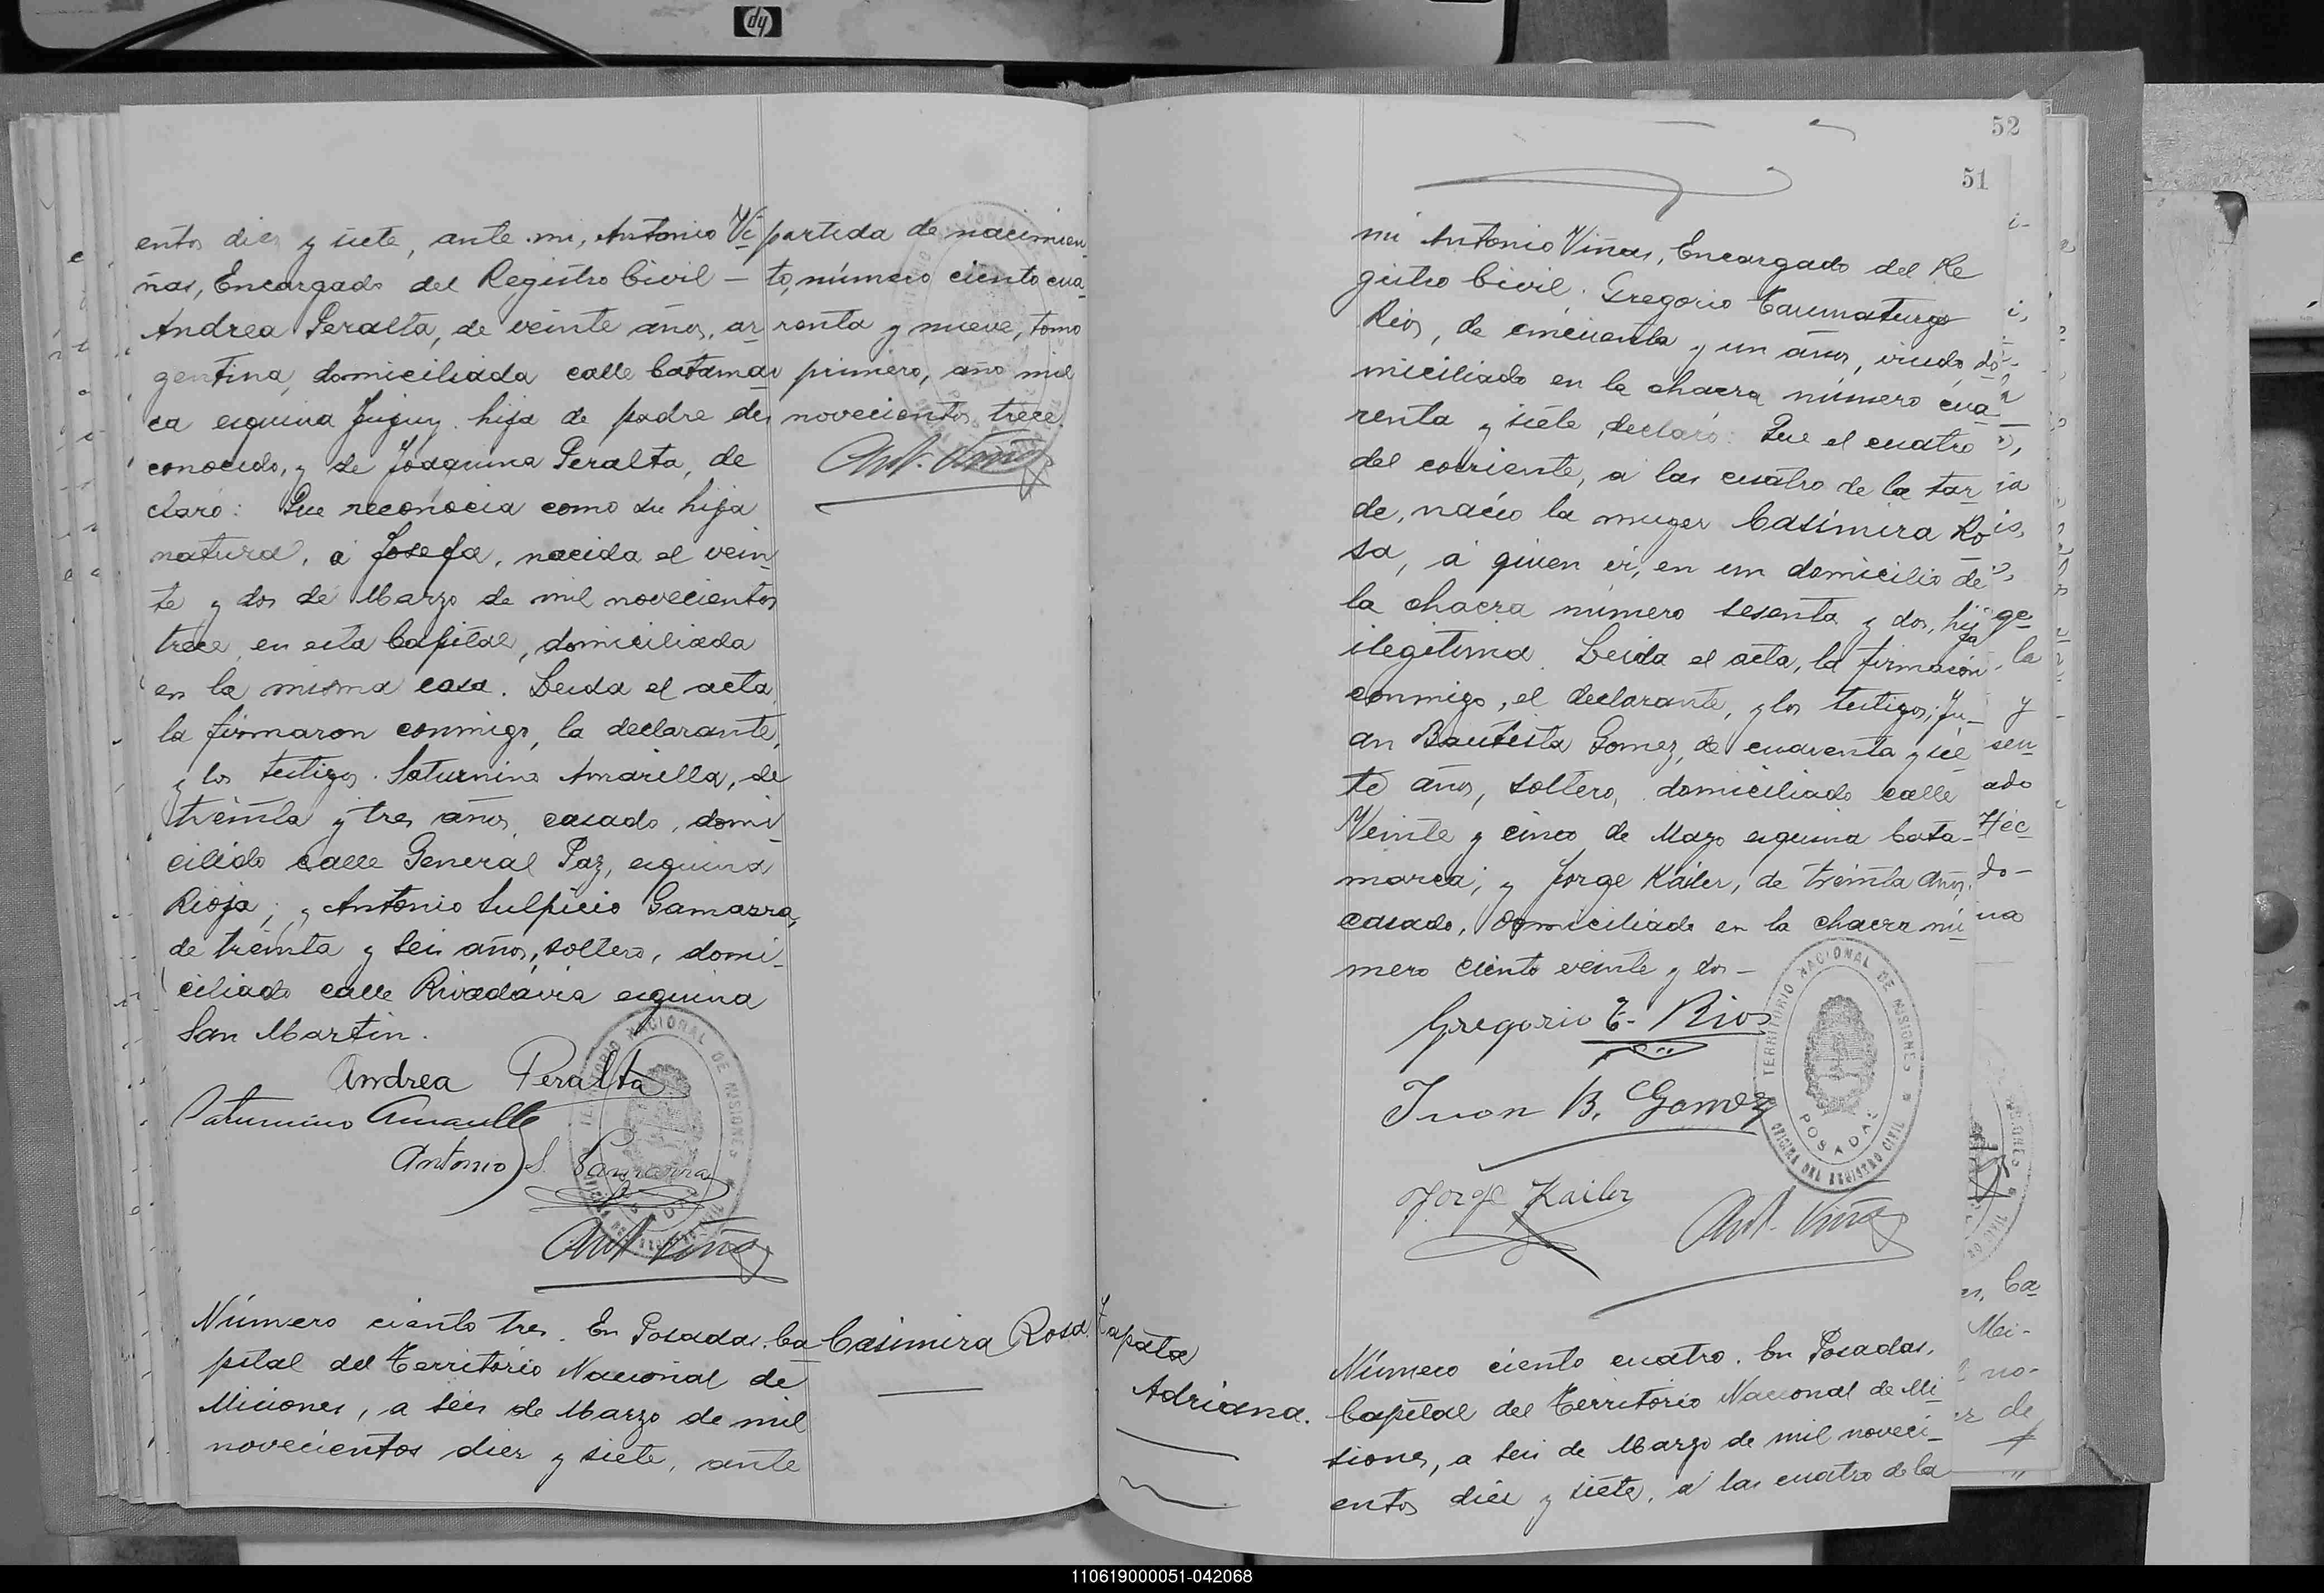 entos diez y siete, ante mi, Antonio Vi
ñas, Encargado del Registro Civil —
Andrea Peralta, de veinte años, ar
gentina, domiciliada calle Catamar
ca esquina Jujuy, hija de padre des
conocido, y de Joaquina Peralta, de
claró: Que reconocia como su hija
natural, a Josefa, nacida el vein
te y dos de Marzo de mil novecientos
trece, en esta Capital, domiciliada
en la misma casa. Leida el acta
la firmaron conmigo, la declarante,
y los testigos. Saturnino Amarilla, de
treinta y tres años, casado, domi
ciliado calle General Paz, esquina
Rioja; y Antonio Sulpicio Gamarra,
de treinta y seis años, soltero, domi-
ciliado calle Rivadavia esquina
San Martin.
Andrea Peralta
Saturnino Amarilla
Antonio S. Gamarra
Ant. Viñas
partida de nacimien
to, número ciento cua
renta y nueve, tomo
primero, año mil
novecientos trece.
Ant. Viñas
Número ciento tres. En Posadas, Ca
pital del Territorio Nacional de
Miciones, a seis de Marzo de mil
novecientos diez y siete, ante
Casimira Rosa
52
51
mi Antonio Viñas, Encargado del Re
gistro Civil. Gregorio Taumaturgo
Rios, de cincuenta y un años, viudo, do
miciliado en la chacra número cua
renta y siete, declaró: Que el cuatro
del corriente, a las cuatro de la tar
de, nació la muger Casimira Ro
sa, á quien vi, en un domicilio de
la chacra número sesenta y dos, hija
ilegitima. Leida el acta, la firmaron
conmigo, el declarante, y los testigos; Ju-
an Bautista Gomez, de cuarenta y sie
te años, soltero, domiciliado calle
Veinte y cinco de Mayo esquina Cata-
marca; y Jorge Kailer, de treinta años,
casado, domiciliado en la chacra nú
mero ciento veinte y dos —
Gregorio T. Rios
Juan B. Gomez
Jorge Kailer
Ant. Viñas
TERRITORIO NACIONAL DE MISIONES
POSADAS
OFICINA DEL REGISTRO CIVIL
Zapata
Adriana.
Número ciento cuatro. En Posadas,
Capital del Territorio Nacional de Mi
siones, a seis de Marzo de mil noveci-
entos diez y siete, a las cuatro de la
110619000051-042068